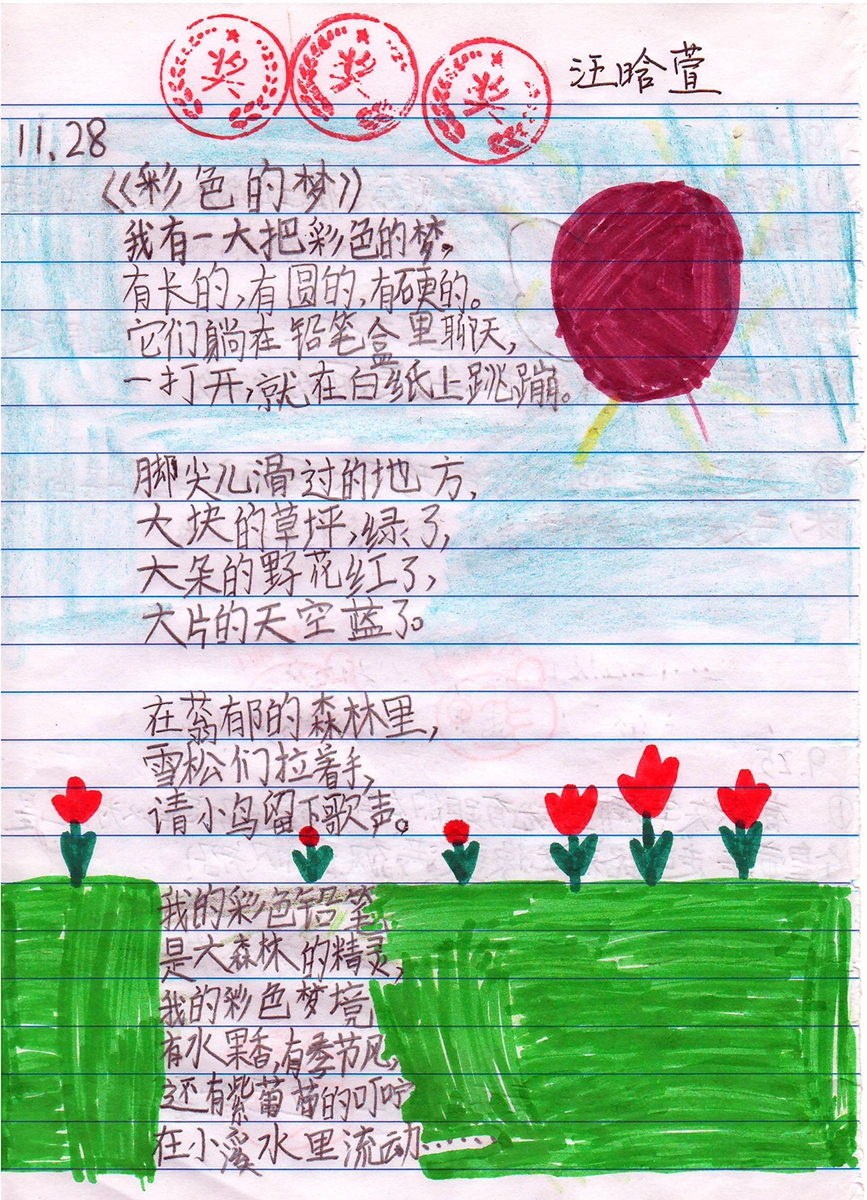 奖 奖 奖
汪晗萱
11.28
《彩色的梦》
我有一大把彩色的梦。
有长的,有圆的,有硬的。
它们躺在铅笔盒里聊天,
一打开,就在白纸上跳蹦。
脚尖儿滑过的地方,
大块的草坪,绿了,
大朵的野花红了,
大片的天空蓝了。
在蓊郁的森林里,
雪松们拉着手,
请小鸟留下歌声。
我的彩色铅笔,
是大森林的精灵,
我的彩色梦境
有水果香,有季节风,
还有紫葡萄的叮咛
在小溪水里流动……